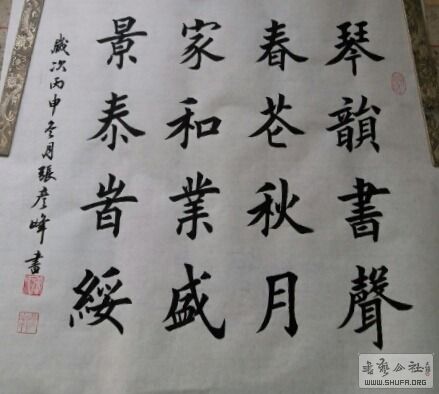 琴韻書聲
春花秋月
家和業盛
景泰旹綏
歲次丙申冬月張彥峰書
書藝公社
WWW.SHUFA.ORG